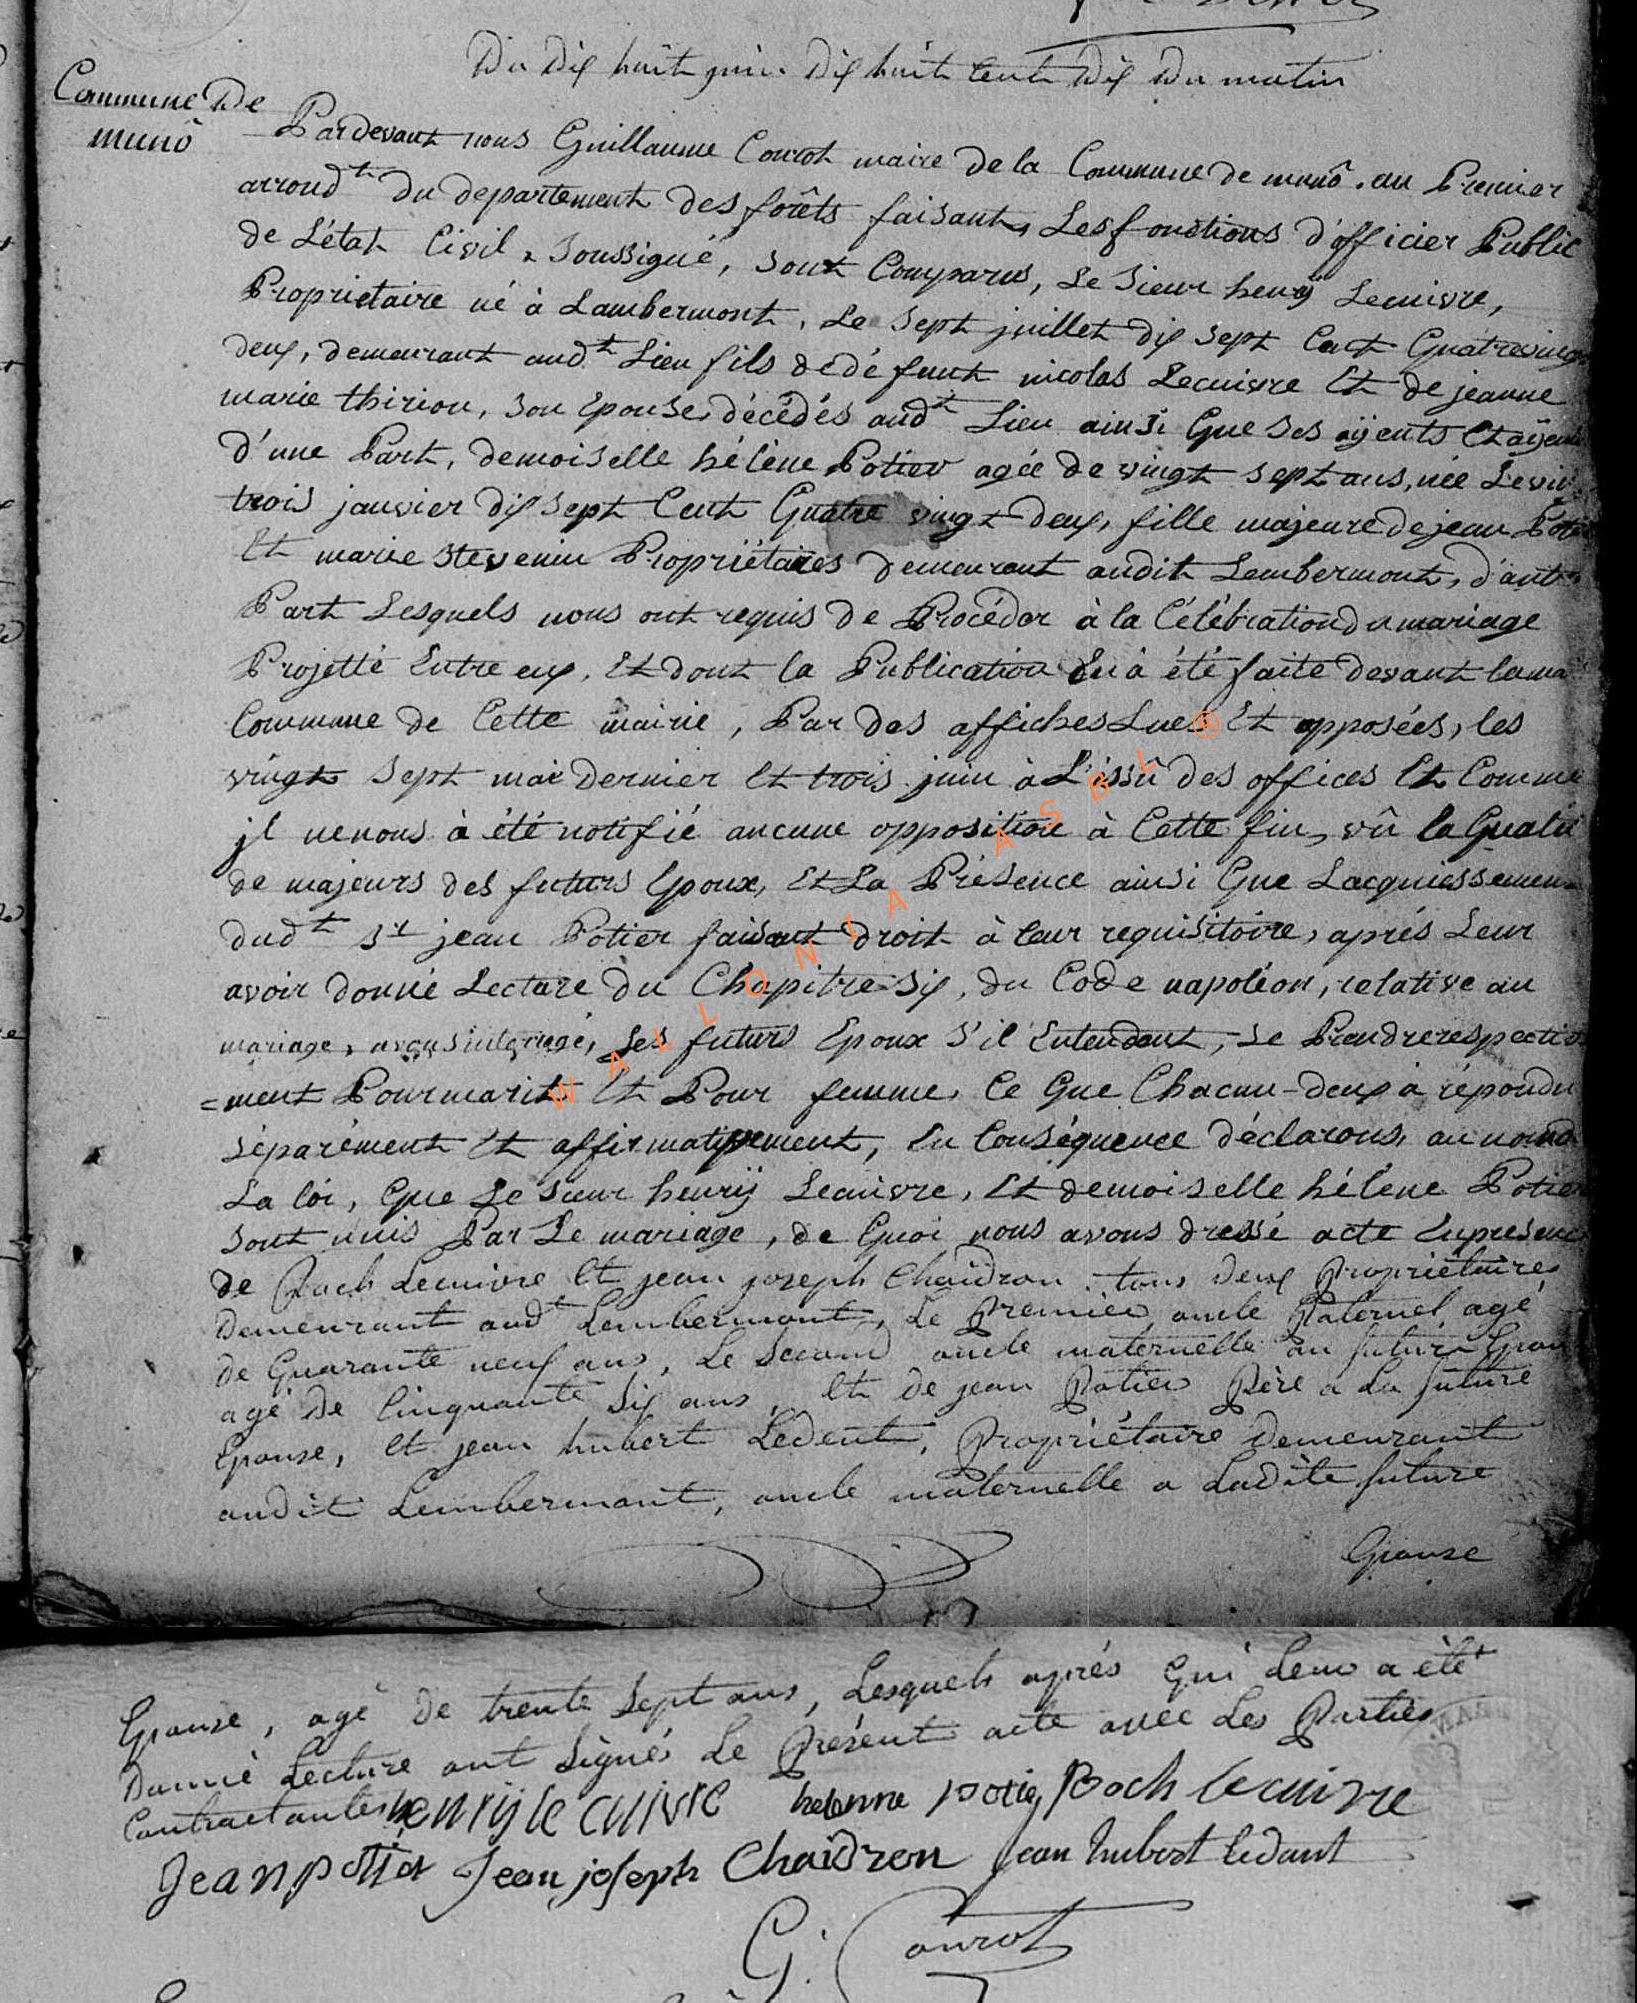 Du Dix huit juin Dix huit Cent Dix Du matin
Commune De
munô
Pardevant nous Guillaume Courot maire de la Commune de munô. au Premier
arrondt. du departement des forêts faisant, Les fonctions d'officier Public
de L'état Civil, Soussigné, sont Comparus, Le Sieur henrÿ Lecuivre,
Proprietaire né à Lambermont, Le Sept juillet dix sept Cent Quatrevingt
deux, demeurant audt Lieu fils de défunt nicolas Lecuivre Et de jeanne
marie thirion, son Epouse, décédés audt Lieu ainsi Que ses aÿeuls Et aÿeules
d'une Part, demoiselle hélène Potier agée de vingt sept ans, née Le
trois janvier dix sept Cent Quatre vingt deux, fille majeure de jean Potier
Et marie Stevenin Propriétaires demeurant audit Lembermont, d'autre
Part Lesquels nous ont requis de Procéder à la Célébration du mariage
Projetté Entre eux, Et dont la Publication En à été faite devant la
Commune de Cette mairie, Par des affiches Lues Et apposées, les
vingt sept mai Dernier Et trois juin à L'issû des offices Et Comme
jl ne nous à été notifié aucune opposition à Cette fin, vû la Qualité
de majeurs des futurs Epoux, Et La Présence ainsi Que Lacquiessement
dudt Sr jean Potier faisant droit à leur requisitoire, aprés Leur
avoir donné Lecture du Chapitre Six, du Code napoléon, relative au
mariage, avons intérogé, Les futurs Epoux s'il Entendent, se Prendre respective
=ment Pour marit Et Pour femme, Ce Que Chacun-deux à répondu
séparément Et affirmativement, En Conséquence déclarons, au nom de
La loi, Que Le sieur henrÿ Lecuivre, Et demoiselle hélène Potier
sont unis Par Le mariage, de Quoi nous avons dressé acte En presence
de Roch Lecuivre Et jean joseph Chaidron tous deux Propriétaires
Demeurant audt Lembermont, Le Premier oncle Paternel agé
de Quarante neuf ans, Le Second oncle maternelle au futur Epoux
agé de Cinquante Six ans, Et de jean Potier Père a La future
Epouse, Et jean hubert Ledent, Propriétaire Demeurant
audit Lembermont, oncle maternelle a Ladite future
Epouse
Epouse, agé de trente Sept ans, Lesquels après Qui Leur a été
Donné Lecture ont Signés Le Présent acte avec Les Parties
Contractantes henrÿ le cuivre helenne potier Roch lecuivre
Jean potier Jean joseph Chaidron Jean hubert ledant
G. Courot
WALLONIA ASBL ®